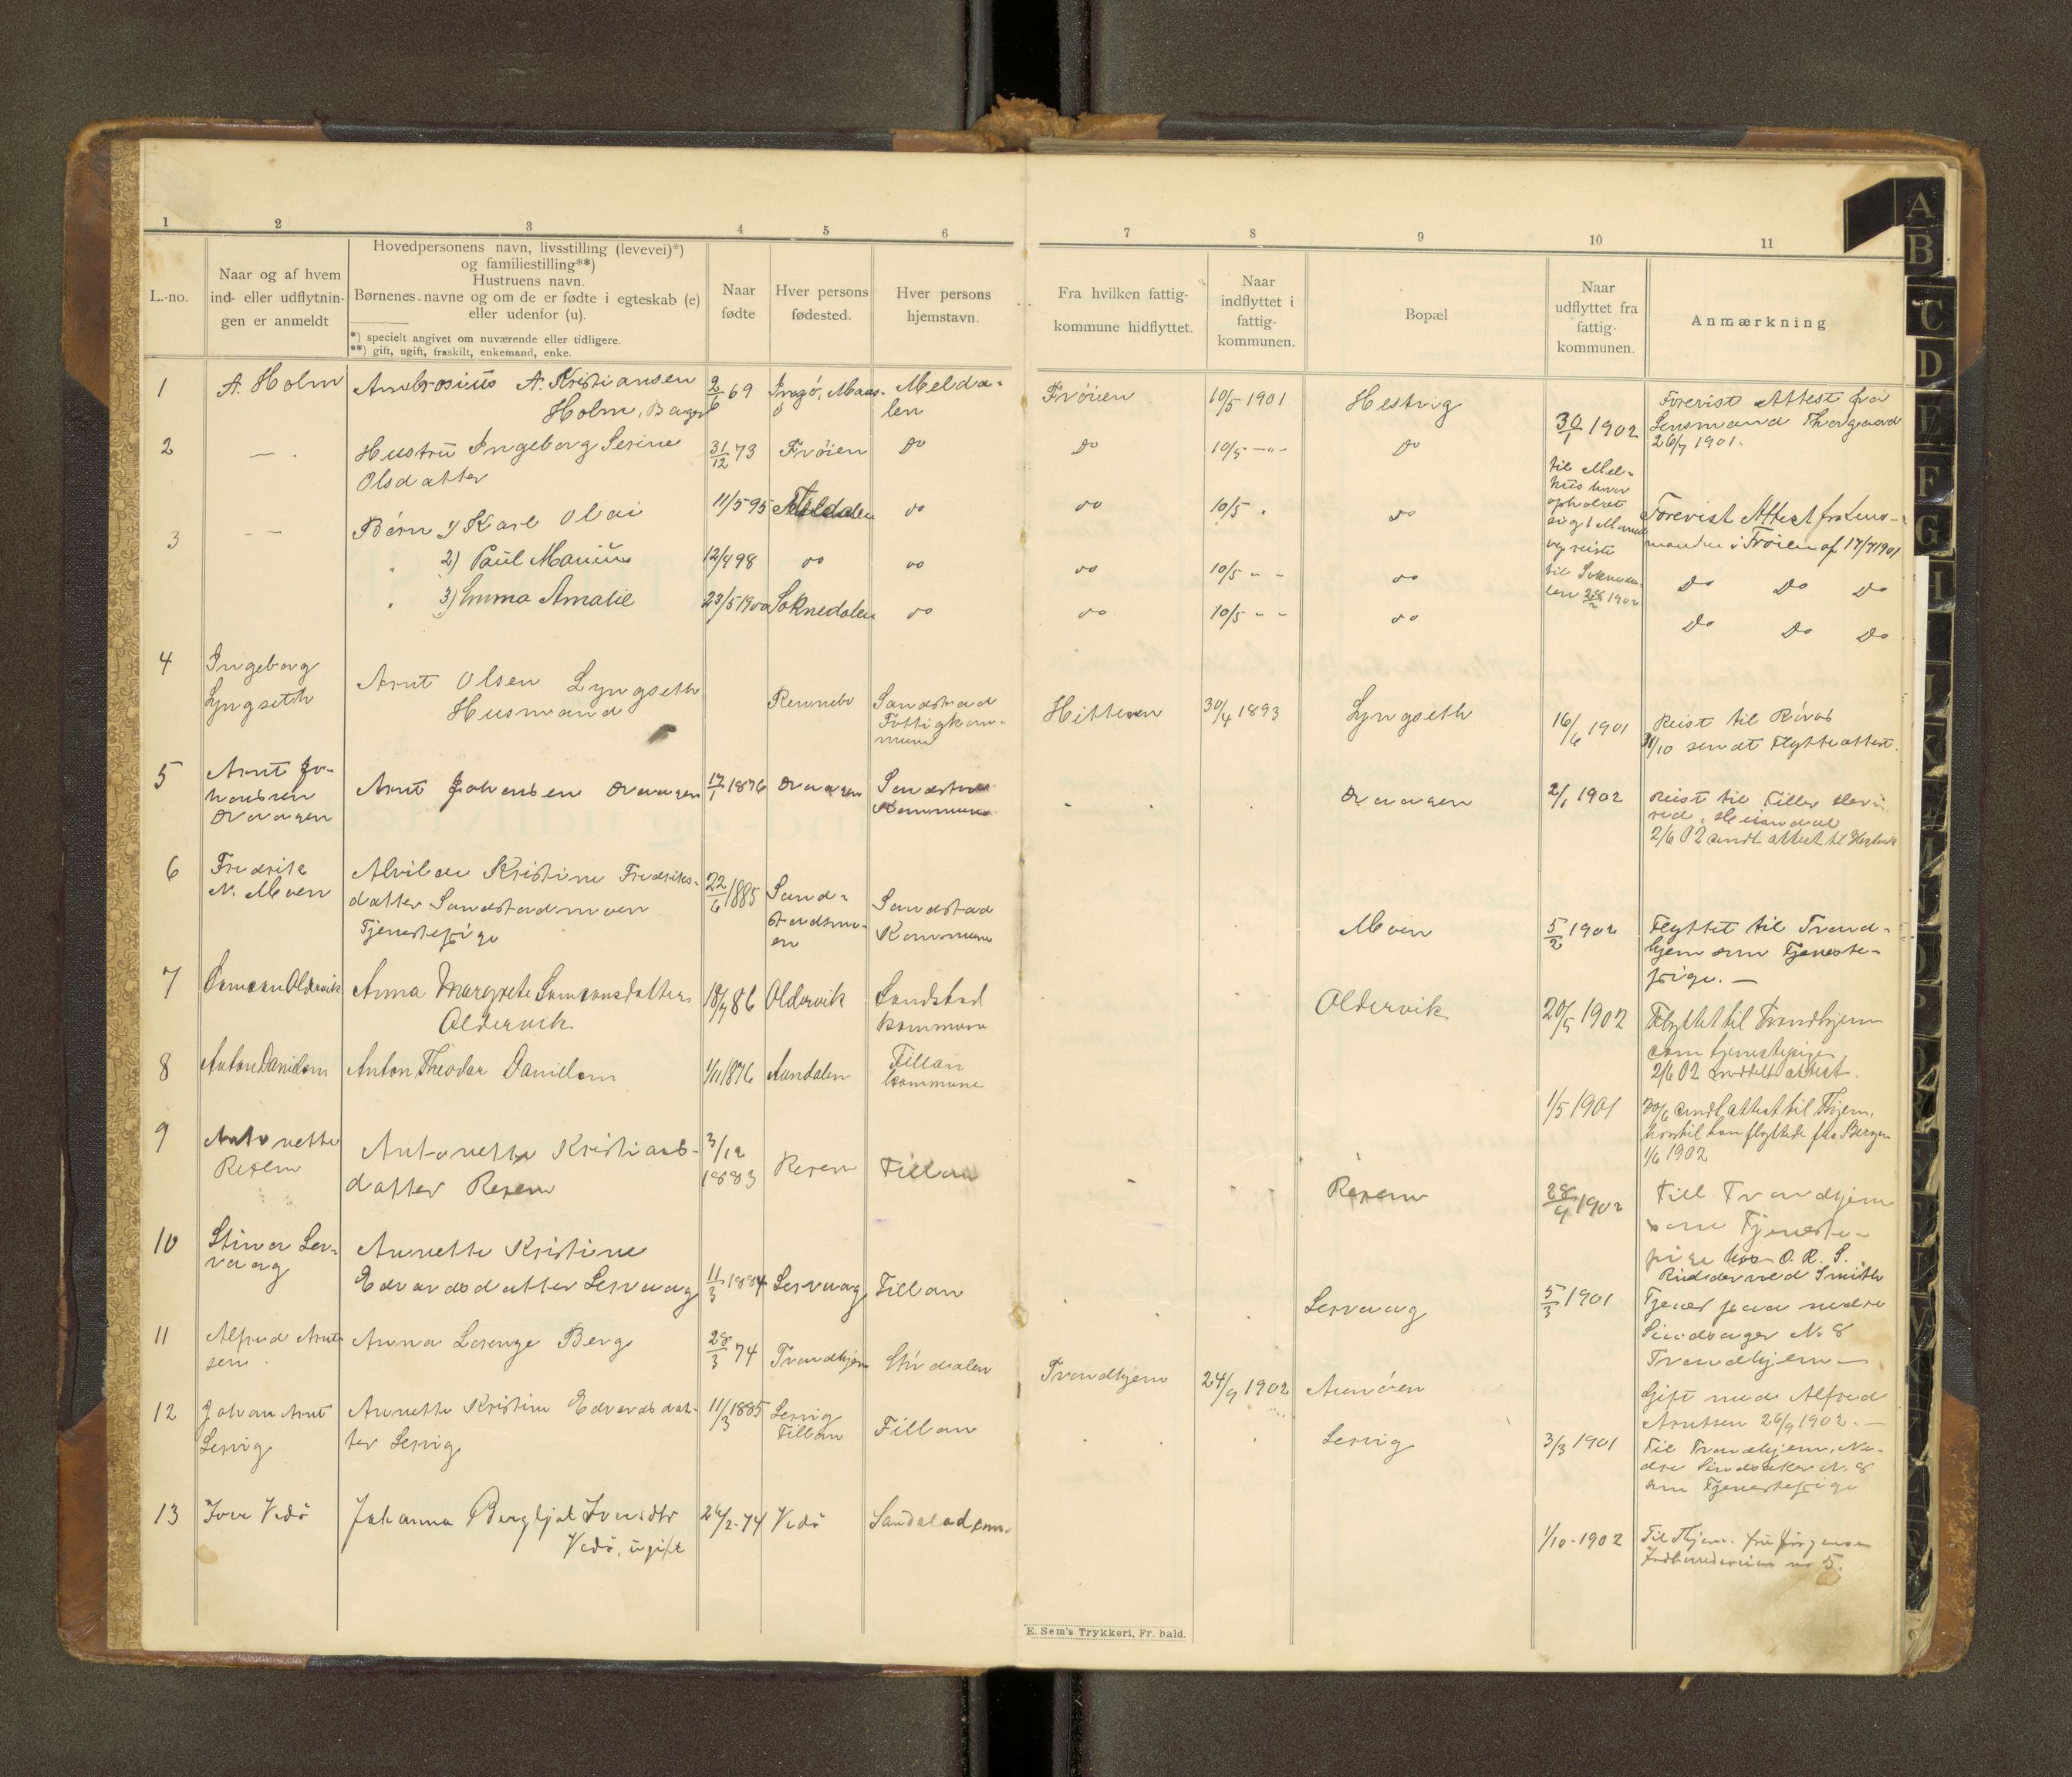 1 2 3 4 5 6 7 8 9 10 11
L.-no.
Naar og af hvem
ind- eller udflytnin-
gen er anmeldt
Hovedpersonens navn, livsstilling (levevei)*)
og familiestilling**)
Hustruens navn.
Børnenes navne og om de er fødte i egteskab (e)
eller udenfor (u).
*) specielt angivet om nuværende eller tidligere.
**) gift, ugift, fraskilt, enkemand, enke.
Naar
fødte
Hver persons
fødested.
Hver persons
hjemstavn.
Fra hvilken fattig-
kommune hidflyttet.
Naar
indflyttet i
fattig-
kommunen.
Bopæl
Naar
udflyttet fra
fattig-
kommunen.
Anmærkning
1 A. Holm Ambrosius A. Kristiansen 2/6 69 Melda- Frøien 10/5 1901 Hestvig Forevist Attest fra
Holm, len 30/1 1902 Lensmand Thorgaard
26/7 1901.
2 — . Hustru Ingeborg Serine 31/12 73 Frøien Do Do 10/5 —"- Do
Olsdatter
til Mel-
hus hvor
opholdt
sig 1 Maaned
og reiste
til Sokneda-
len 28/2 1902
3 — Børn 1) Karl Olai 11/5 95 Meldalen do do 10/5 " do Forevist Attest fra Lens-
manden i Frøien af 17/7 1901
" 2) Paul Marius 12/4 98 do do do 10/5 " - do Do Do Do
" 3) Emma Amalie 23/5 1900 Soknedalen do do 10/5 - - do Do Do Do
4 Ingeborg
Lyngseth
Arnt Olsen Lyngseth
Husmand
Rennebo
Sandstad
Fattigkom-
mune
Hitteren 30/4 1893 Lyngseth 16/6 1901
Reist til Röros
31/10 sendt Flytteattest.
5 Arnt Jo-
hansen
Aravagen
Arnt Johansen 17/1 1876
Sandstad
Kommune
2/1 1902
Reist til Tiller
2/6 02 sendt attest til
6 Fredrik
N. Moen
Alvilde Kristine Fredriks-
datter Sandstadmoen
Tjenestepige
22/6 1885
Sand-
stadmo-
en
Sandstad
Kommune
Moen 5/2 1902
Flyttet til Trond-
hjem som Tjeneste-
pige. —
7 Samson Oldervik
Anna Margrete Samsonsdatter
Oldervik
18/7 86 Oldervik
Sandstad
kommune
Oldervik 20/5 1902
Flyttet til Trondhjem
som tjenestepige
2/6 02 meddelt attest.
8 Anton Danielsen Anton Theodor Danielsen 1/11 1876 Aundalen
Fillan
kommune
1/5 1901
30/6 sendt attest til Thjem,
hvortil han flyttede fra Bergen
1/6 1902
9 Antonette
Rexen
Antonette Kristians-
datter Rexen
3/12
1883
Rexen Fillan Rexem 28/4 1902
Till Trondhjem
som Tjeneste-
pige hos O. R. S.
10 Stina Ler-
vaag
Annette Kristine
Edvardsdatter Lervaag
11/3 1884 Lervaag Fillan Lervaag 5/3 1901
Tjener paa nedre
Sindsager No 8
Trondhjem —
11 Alfred Arnt-
sen
Anna Lorenze Berg 28/3 74 Trondhjem Stördalen Trondhjem 24/9 1902 Aunöien
Gift med Alfred
Arntsen 26/9 1902. —
12 Johan Arnt
Lervig
Annette Kristine Edvardsdat-
ter Lervig
11/3 1885
Lervig
Fillan
Fillan Lervig 3/3 1901
Til Trondhjem, Ne-
dre Sindsaker No 8
som Tjenestepige
13 Iver Vedö
Johanna Bergljot Iversdtr
Vedö, ugift
26/2-74 Vedö 1/10-1902
Til Thjem. fru Jörgensen
no 5.
E. Sem's Trykkeri, Fr. hald.
A
B
C
D
E
F
G
H
I